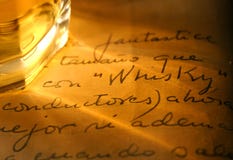 fantastico
tamano que
con "Whisky"
conductores) ahora
mejor si adema
cuando sal